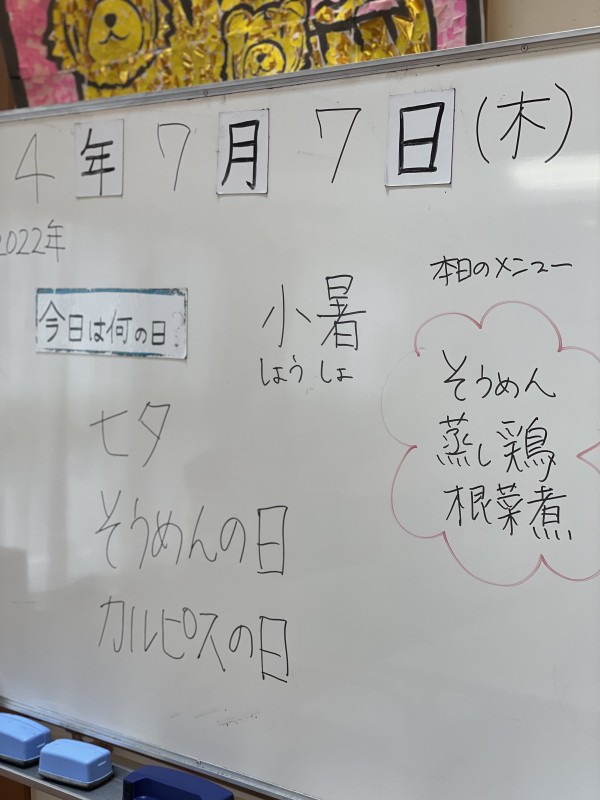 4年7月7日(木)
2022年
今日は何の日
小暑
しょうしょ
七夕
そうめんの日
カルピスの日
本日のメニュー
そうめん
蒸し鶏
根菜煮